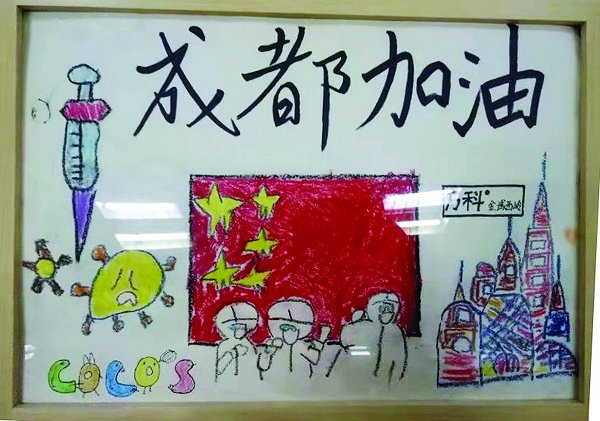 成都加油
万科 金域西岭
COCO'S